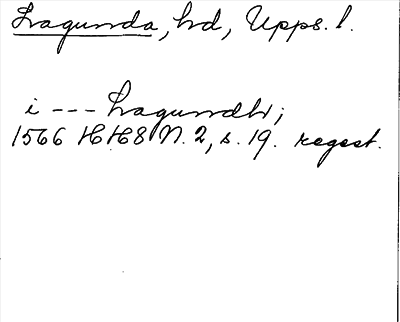 Lagunda, hd, Upps. l.
i --- Lagundh;
1566 HH8 N. 2, s. 19. regest.